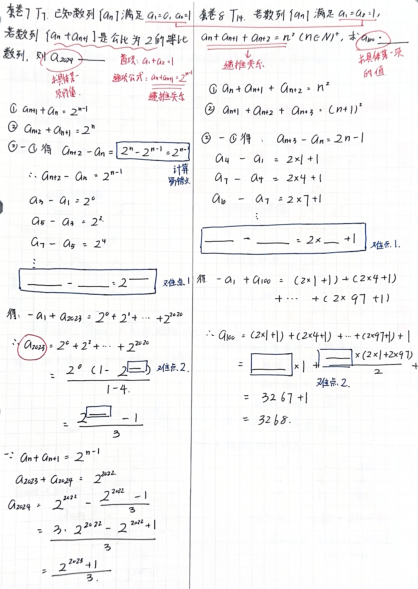 套卷7 T7. 已知数列{aₙ}满足 a₁=0, a₂=1
若数列{aₙ+aₙ₊₁}是公比为2的等比
数列, 则 a₂₀₂₄
首项: a₁+a₂=1
通项公式: aₙ+aₙ₊₁=2ⁿ⁻¹
递推关系
① aₙ₊₁+aₙ=2ⁿ⁻¹
② aₙ₊₂+aₙ₊₁=2ⁿ
②-①得 aₙ₊₂-aₙ=2ⁿ-2ⁿ⁻¹=2ⁿ⁻¹
计算
易错点
∴aₙ₊₂-aₙ=2ⁿ⁻¹
a₃-a₁=2⁰
a₅-a₃=2²
a₇-a₅=2⁴
⋮
__ - __ = 2__
难点1
得: -a₁+a₂₀₂₃=2⁰+2²+⋯+2²⁰²⁰
∴a₂₀₂₃=2⁰+2²+⋯+2²⁰²⁰
= 2⁰(1-2□)/1-4
难点2.
= 2□-1/3
∵aₙ+aₙ₊₁=2ⁿ⁻¹
a₂₀₂₃+a₂₀₂₄=2²⁰²²
a₂₀₂₄=2²⁰²²-2²⁰²²-1/3
=3·2²⁰²²-2²⁰²²+1/3
=2²⁰²³+1/3.
套卷8 T14. 若数列{aₙ}满足 a₁=a₂=1,
aₙ+aₙ₊₁+aₙ₊₂=n²(n∈N)*, 求a₁₀₀.
递推关系
求具体某一项
的值
① aₙ+aₙ₊₁+aₙ₊₂=n²
② aₙ₊₁+aₙ₊₂+aₙ₊₃=(n+1)²
②-①得. aₙ₊₃-aₙ=2n+1
a₄-a₁=2×1+1
a₇-a₄=2×4+1
a₁₀-a₇=2×7+1
⋮
__ - __ = 2×__+1
难点1.
得 -a₁+a₁₀₀=(2×1+1)+(2×4+1)
+⋯+(2×97+1)
∴a₁₀₀=(2×1+1)+(2×4+1)+⋯+(2×97+1)+1
=□×1+□×(2×1+2×97)/2+
难点2.
=3267+1
=3268.